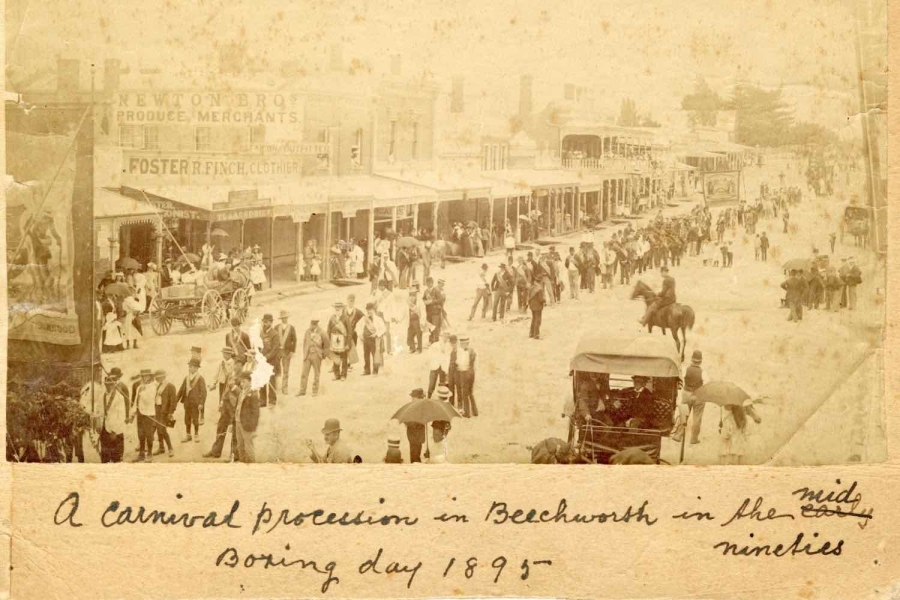 NEWTON BROS
PRODUCE MERCHANTS
FOSTER R. FINCH, CLOTHIER
A carnival procession in Beechworth in the mid early
nineties
Boxing day 1895